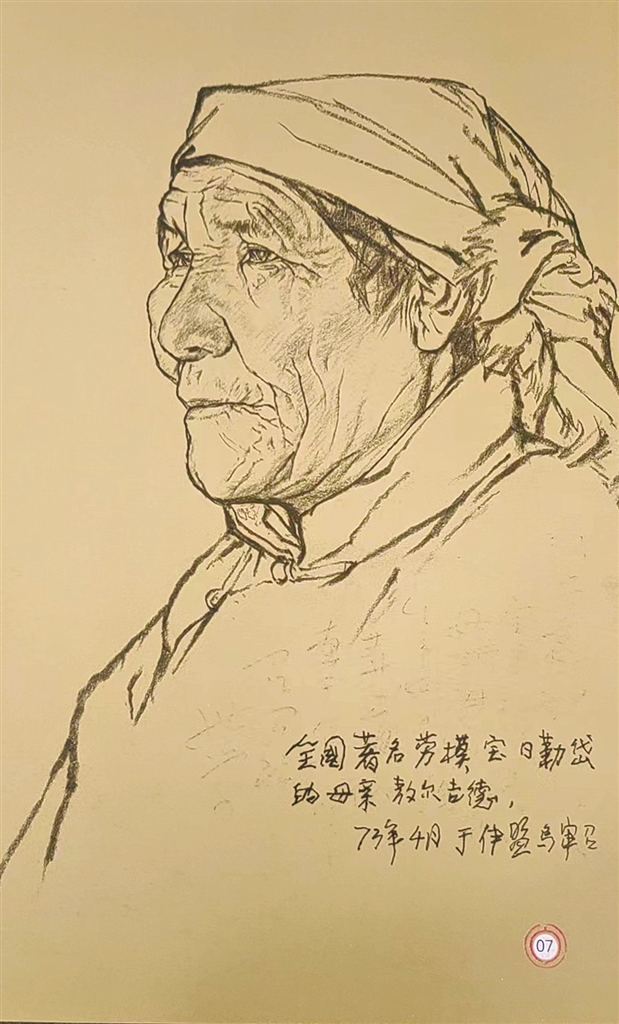 全國著名劳模宝日勒岱
的母亲敖尔吉德,
73年4月于伊盟乌审召
07